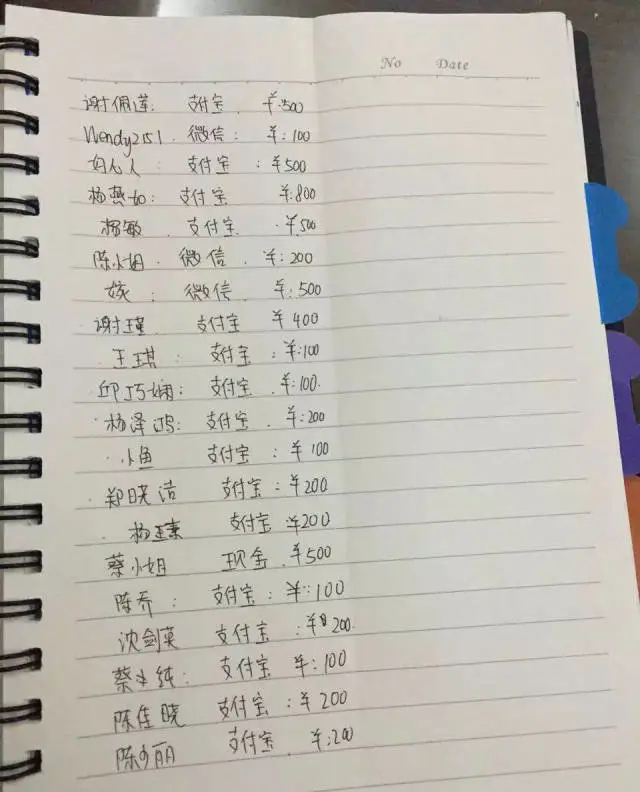 No Date
谢佩莲: 支付宝 ¥:500
Wendy2151. 微信: ¥:100
妇人人: 支付宝: ¥500
杨燕如: 支付宝 ¥:800
杨敏 支付宝 ¥:500
陈小姐. 微信. ¥:200
嫁: 微信. ¥:500
谢瑾. 支付宝 ¥400
王琪: 支付宝: ¥:100
邱巧娴: 支付宝. ¥:100.
杨泽鸿: 支付宝. ¥:200
小鱼 支付宝: ¥100
郑晓洁 支付宝: ¥200
杨 支付宝 ¥200
蔡小姐 现金. ¥500
陈乔: 支付宝: ¥:100
沈剑英 支付宝: ¥200.
蔡纯: 支付宝 ¥:100
陈佳晓 支付宝: ¥200
陈少丽 支付宝. ¥:200